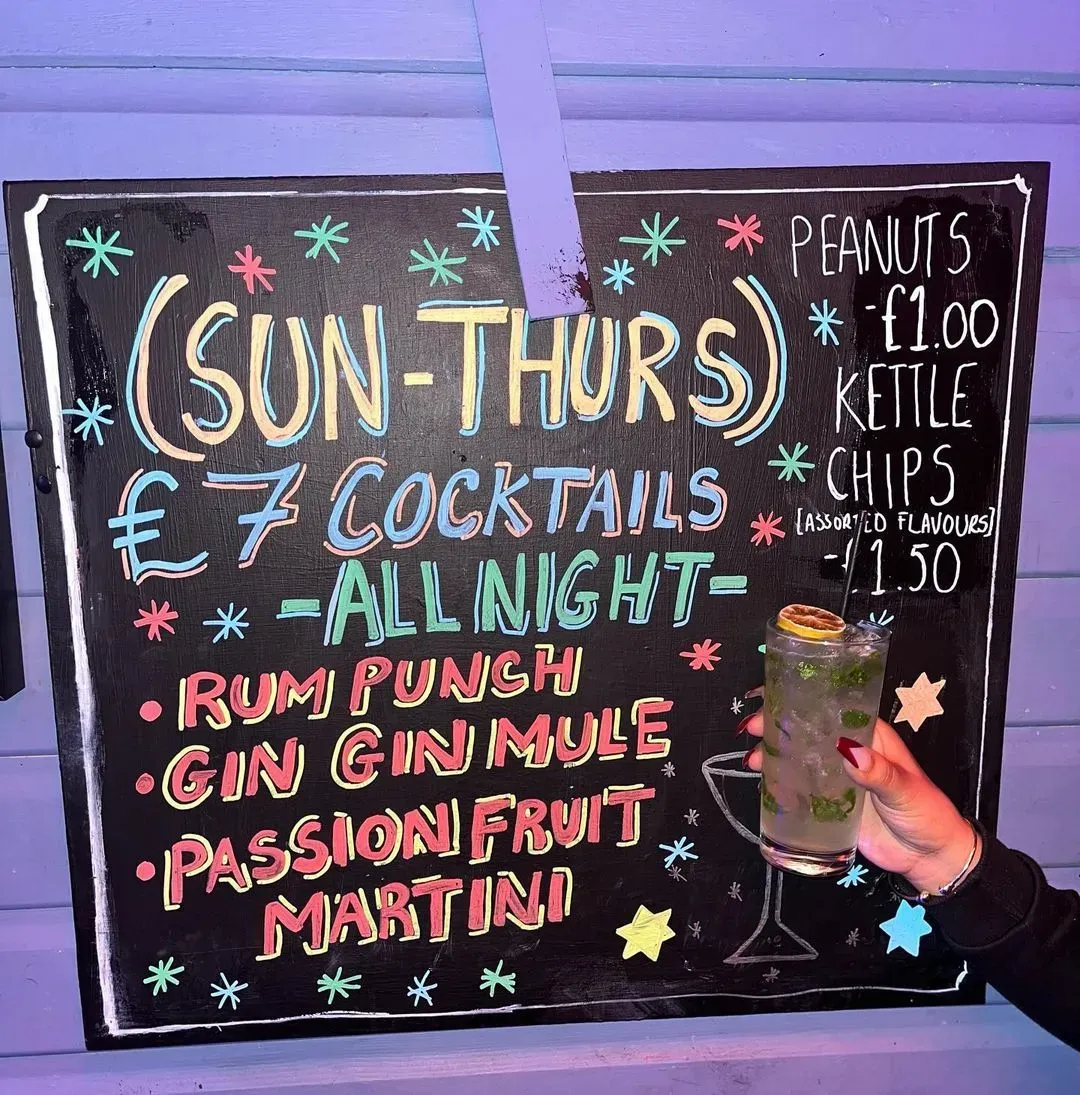 (SUN-THURS)
£7 COCKTAILS
-ALL NIGHT-
• RUM PUNCH
• GIN GIN MULE
• PASSION FRUIT
MARTINI
PEANUTS
-£1.00
KETTLE
CHIPS
[ASSORTED FLAVOURS]
-£1.50